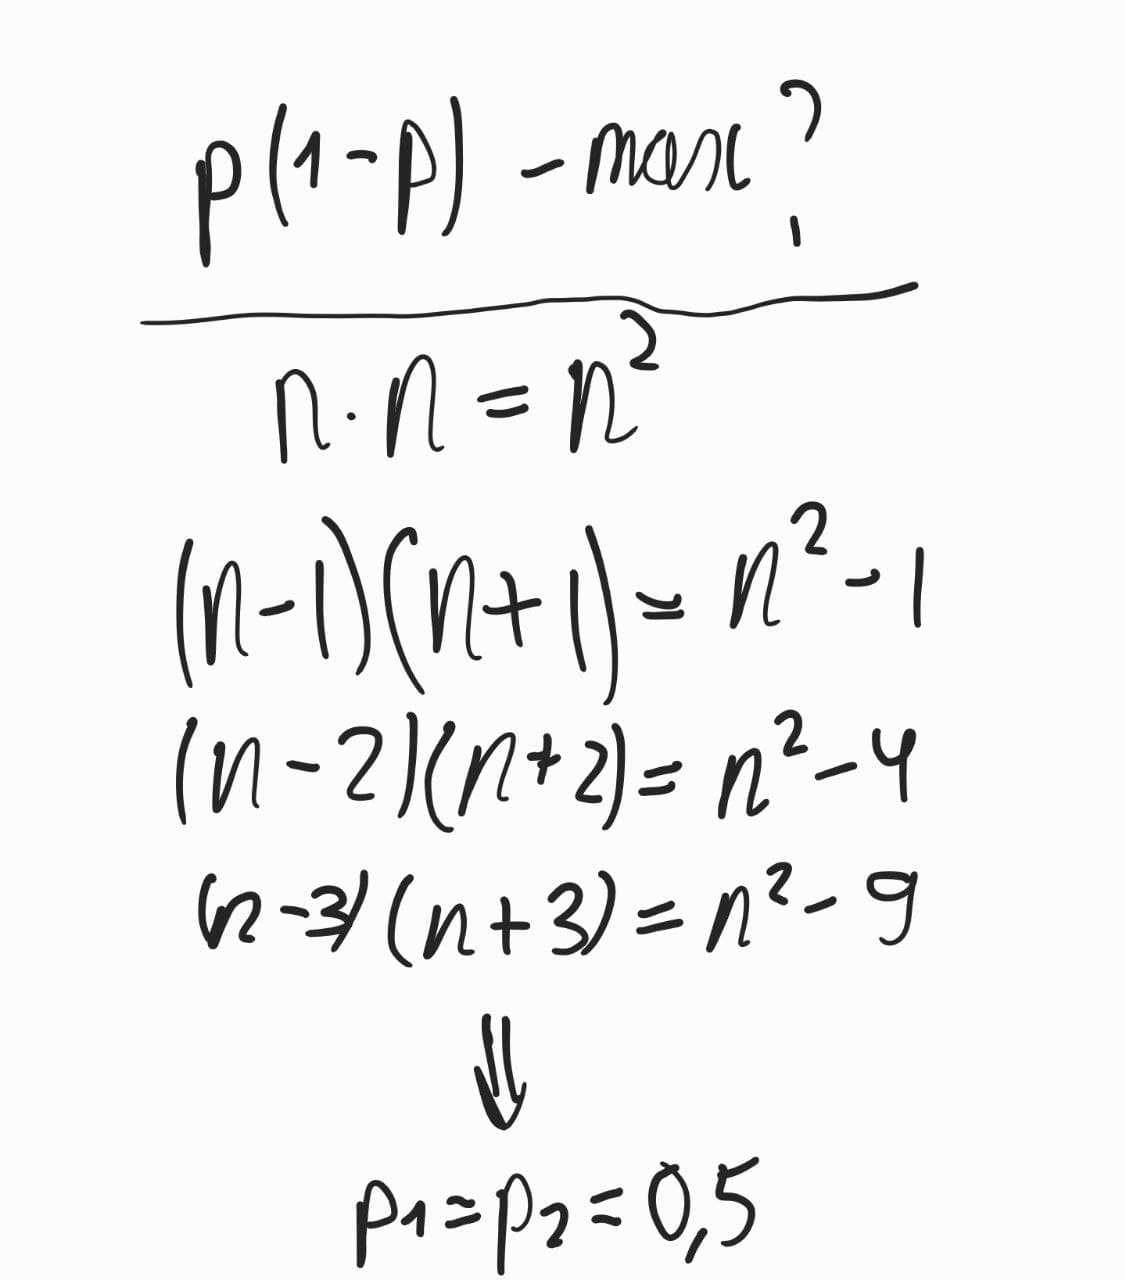 p(1-p) - max?
n·n = n²
(n-1)(n+1) = n²-1
(n-2)(n+2) = n²-4
(n-3)(n+3) = n²-9
⇓
p₁=p₂=0,5